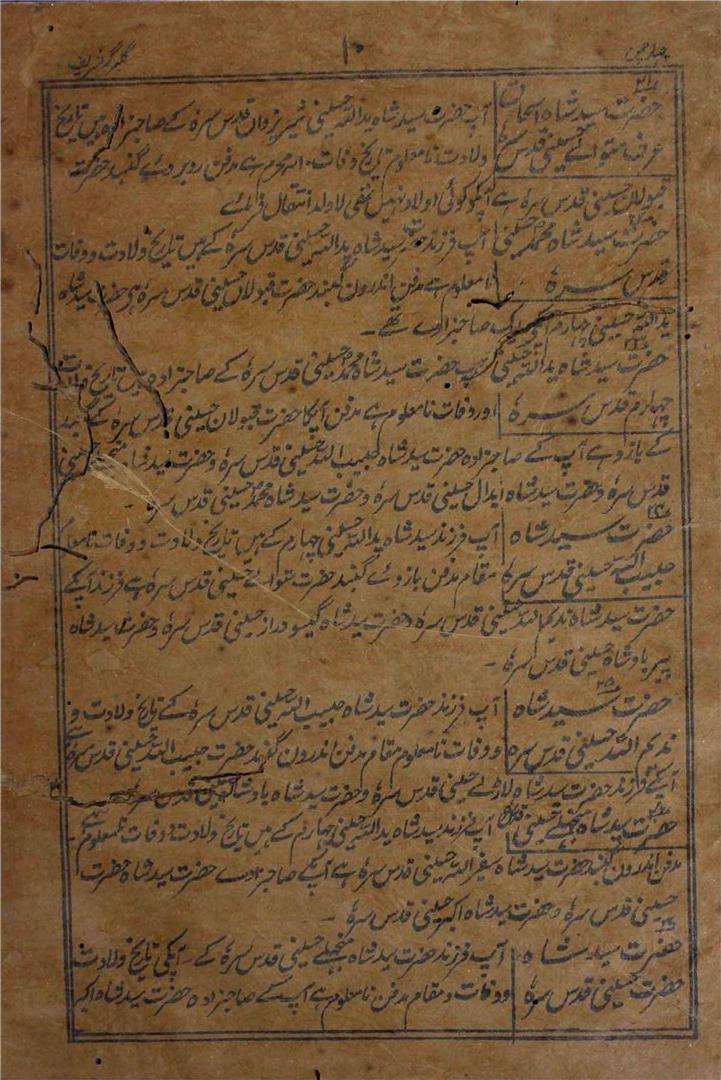 ۱۰
گلبرگہ شریف
حضرت سید شاہ اسحاق آپ حضرت سید شاہ ید اللہ حسینی قدس سرہ کے صاحبزادہ ہیں تاریخ
عرف متوالے حسینی قدس سرہ ولادت نامعلوم تاریخ وفات محرم ہے مدفن روبروئے گنبد حضرت
قبولان حسینی قدس سرہ ہے آپکو کوئی اولاد نہیں تھی لاولد انتقال فرمائے
حضرت سید شاہ محمد حسینی آپ فرزند حضرت سید شاہ ید اللہ حسینی قدس سرہ کے ہیں تاریخ ولادت و وفات
قدس سرہ نامعلوم ہے مدفن اندرون گنبد حضرت قبولان حسینی قدس سرہ ہے حضرت سید شاہ
ید اللہ حسینی چہارم آپکے ایک صاحبزادے تھے ۔
حضرت سید شاہ ید اللہ حسینی آپ حضرت سید شاہ محمد حسینی قدس سرہ کے صاحبزادہ ہیں تاریخ ولادت
چہارم قدس سرہ اور وفات نامعلوم ہے مدفن آپکا حضرت قبولان حسینی قدس سرہ کے گنبد
کے بازو ہے آپ کے صاحبزادہ حضرت سید شاہ حبیب اللہ حسینی قدس سرہ و حضرت سید شاہ منجھلے حسینی
قدس سرہ و حضرت سید شاہ ابدال حسینی قدس سرہ و حضرت سید شاہ محمد حسینی قدس سرہ ۔
حضرت سید شاہ آپ فرزند سید شاہ ید اللہ حسینی چہارم کے ہیں تاریخ ولادت و وفات نامعلوم
حبیب اللہ حسینی قدس سرہ مقام مدفن بازوئے گنبد حضرت متوالے حسینی قدس سرہ ہے فرزند آپکے
حضرت سید شاہ ندیم اللہ حسینی قدس سرہ و حضرت سید شاہ گیسو دراز حسینی قدس سرہ و حضرت سید شاہ
پیر بادشاہ حسینی قدس سرہ ۔
حضرت سید شاہ آپ فرزند حضرت سید شاہ حبیب اللہ حسینی قدس سرہ کے تاریخ ولادت و
ندیم اللہ حسینی قدس سرہ و وفات نامعلوم مقام مدفن اندرون گنبد حضرت حبیب اللہ حسینی قدس سرہ ہے
آپکے فرزند حضرت سید شاہ لاڈلے حسینی قدس سرہ و حضرت سید شاہ بادشاہ حسینی قدس سرہ
حضرت سید شاہ منجھلے حسینی آپ فرزند سید شاہ ید اللہ حسینی چہارم کے ہیں تاریخ ولادت و وفات نامعلوم ہے ۔
مدفن اندرون گنبد حضرت سید شاہ سفیر اللہ حسینی قدس سرہ ہے آپکے صاحبزادے حضرت سید شاہ حضرت
حسینی قدس سرہ و حضرت سید شاہ اکبر حسینی قدس سرہ ۔
حضرت سید شاہ آپ فرزند حضرت سید شاہ منجھلے حسینی قدس سرہ کے ۔ آپکی تاریخ ولادت
حضرت حسینی قدس سرہ و وفات و مقام مدفن نامعلوم ہے آپ کے صاحبزادہ حضرت سید شاہ اکبر